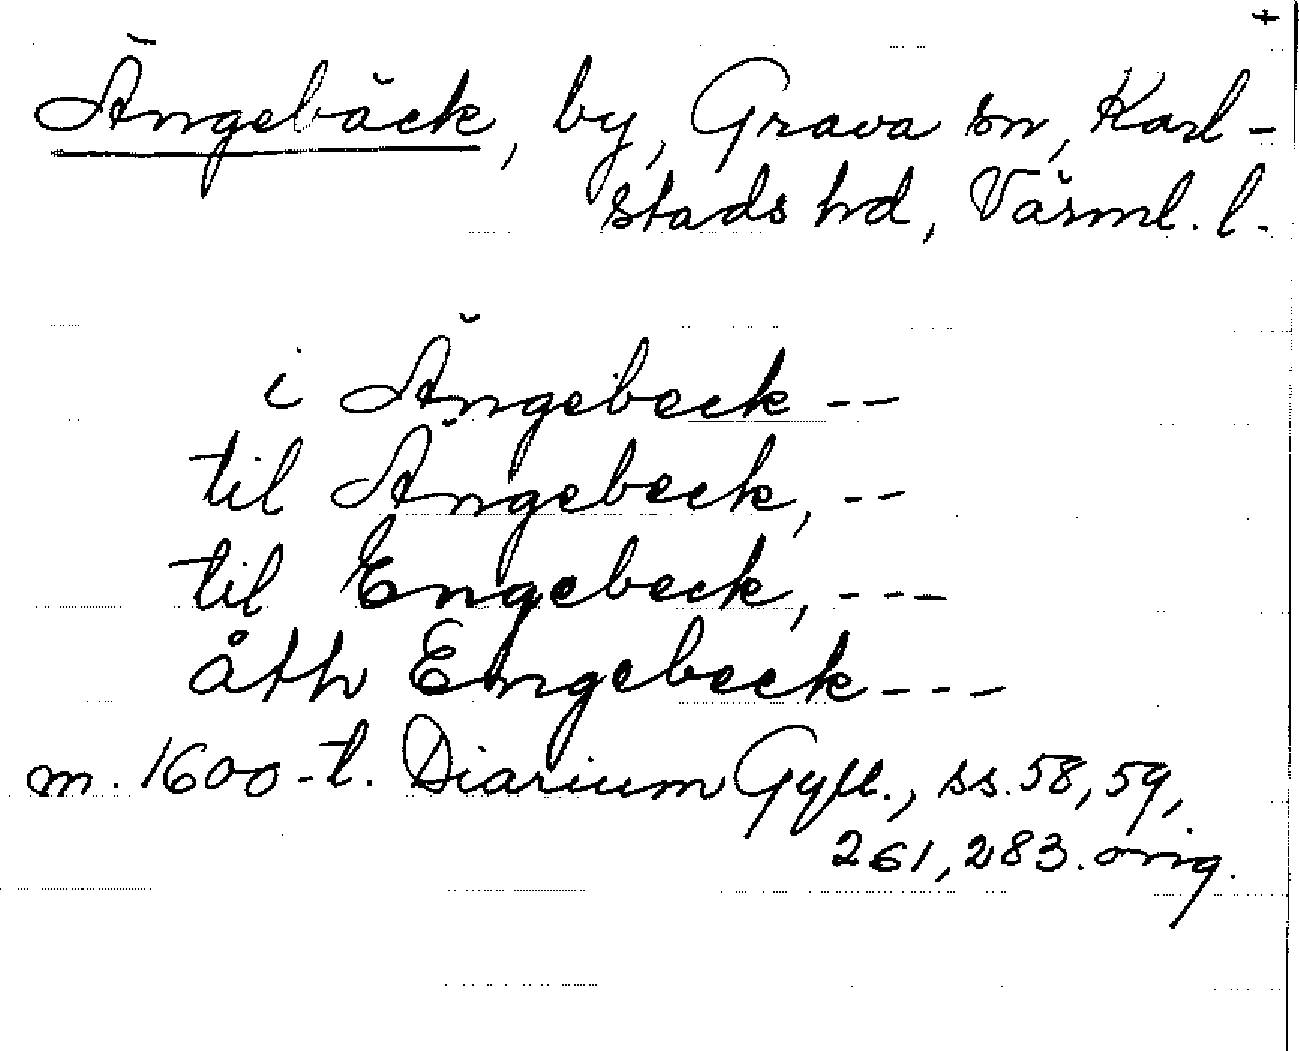 Ängebäck, by, Grava sn, Karl-
stads hd, Värml. l.
i Ängebeck --
til Ängebeck, --
til Engebeck, ---
åth Engebeck ---
m. 1600-t. Diarium Gyll., ss. 58, 59,
261, 283. orig.